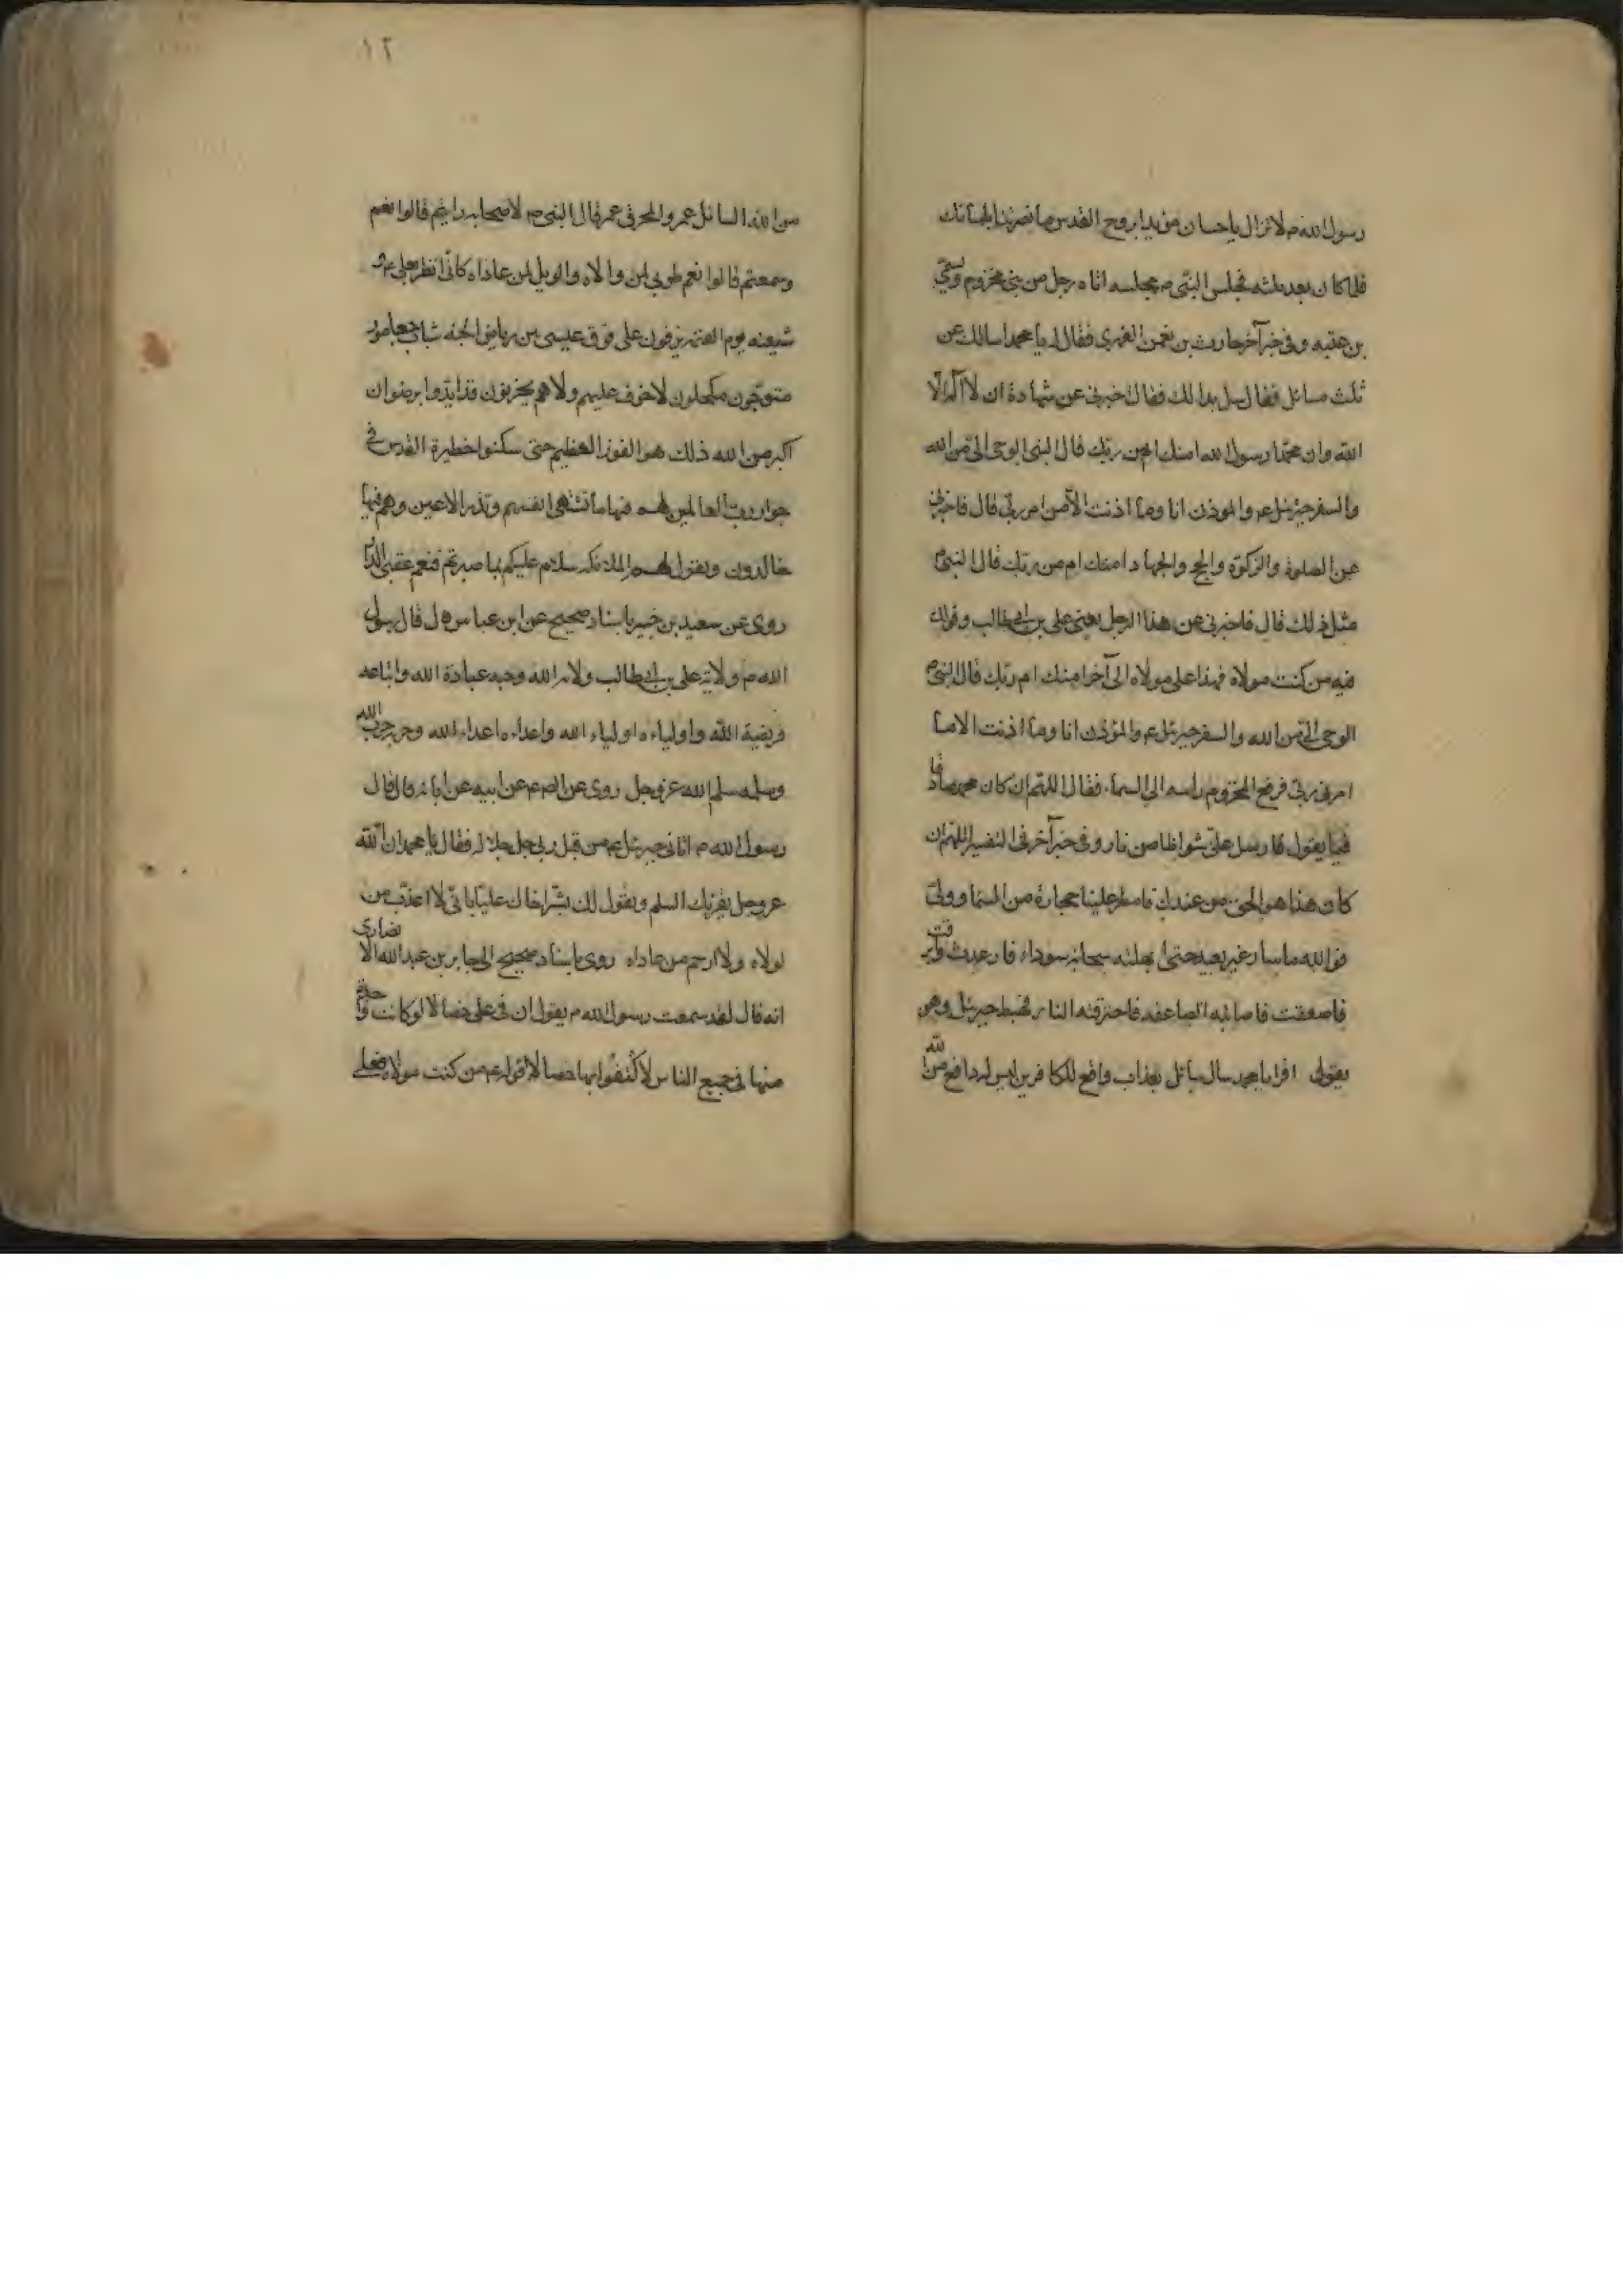 رسول الله ص لا تزال يا حسان مؤيدا بروح القدس ما نصرتنا بلسانك
فلما كان بعد ثلثه فجلس النبي ص مجلسه اتاه رجل من بني مخزوم يسمى
بن عتبه وفي خبر آخر حارث بن نعمن الفهري فقال له يا محمد اسالك عن
ثلث مسائل فقال سل بدا لك فقال اخبرني عن شهادة ان لا اله الا
الله وان محمدا رسول الله امنك ام من ربك قال النبي الوحى الى من الله
والسفر جبرئيل ع والموذن انا وما اذنت الا من امر ربي قال فاخبرني
عن الصلوة والزكوة والحج والجهاد امنك ام من ربك قال النبي
مثل ذلك قال فاخبرني عن هذا الرجل يعني على بن ابى طالب وقولك
فيه من كنت مولاه فهذا على مولاه الى آخر امنك ام ربك قال النبي
الوحى الى من الله والسفر جبرئل ع والمؤذن انا وما اذنت الا ما
امرني ربي فرفع المخزوم راسه الى السماء فقال اللهم ان كان محمد صادقا
فيما يقول فارسل على شواظا من نار وفي خبر آخر في التفسير اللهم ان
كان هذا هو الحق من عندك فامطر علينا حجارة من السما وولى
فوالله ما سار غير بعيد حتى سحابة سوداء فارعدت وابرقت
فاصعقت فاصابته الصاعقه فاحترقته النار فهبط جبرئل وهو
يقول اقرا يا محمد سال سائل بعذاب واقع للكافرين ليس له دافع من الله
١٢
من الله السائل عمرو والمحرق عمر قال النبي ص لاصحابه رايتم قالوا نعم
وسمعتم قالوا نعم طوبى لمن والاه والويل لمن عاداه كأنى انظر على ع و
شيعته يوم القيمه يزفون على من رياض الجنه شباب
متوجون مكحلون لا خوف عليهم ولا هم يحزنون قد ايدوا برضوان
اكبر من الله ذلك هو الفوز العظيم حتى سكنوا حظيرة القدس في
جوار رب العالمين لهم فيها ما تشتهى انفسهم وتلذ الاعين وهم فيها
خالدون ويقول لهم الملائكه سلام عليكم بما صبرتم فنعم عقبى الدار
روى عن سعيد بن جبير باسناد صحيح عن ابن عباس قال قال رسول
الله ص ولاية على بن ابى طالب ولاية الله وحبه عبادة الله واتباعه
فريضة الله واولياءه اولياء الله واعداءه اعداء الله وحربه حرب الله
وسلمه سلم الله عز وجل روى عن الص ع عن ابيه عن ابائه قال قال
رسول الله ص اتانى جبرئل ع من قبل ربي جل جلاله فقال يا محمد ان الله
عز وجل يقرئك السلم ويقول لك بشر اخاك عليا باني لا اعذب من
تولاه ولا ارحم من عاداه روى باسناد صحيح الى جابر بن عبدالله الانصارى
انه قال لقد سمعت رسول الله ص يقول ان في على خصالا لو كانت واحدة
منها في جميع الناس لاكتفوا بها خصالا قوله ع من كنت مولاه فعلى